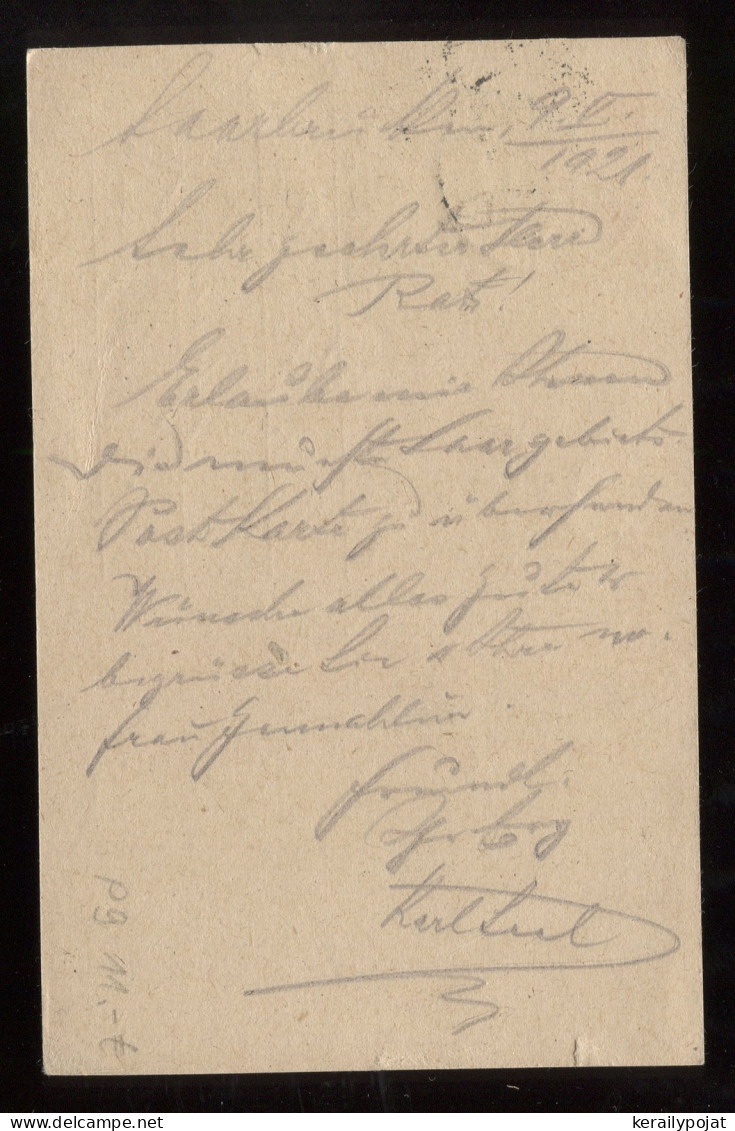 Saarbrücken, 9.II.
1921
Sehr geehrter Herr
Rat!
Erlaube mir Ihnen
die Saargebiets-
Postkarte zu übersenden
Wünsche alles gute u
begrüsse Sie u Ihre
frau Gemahlin.
freundl.
Ihr
Karl
P9 11,-
kerailypojat